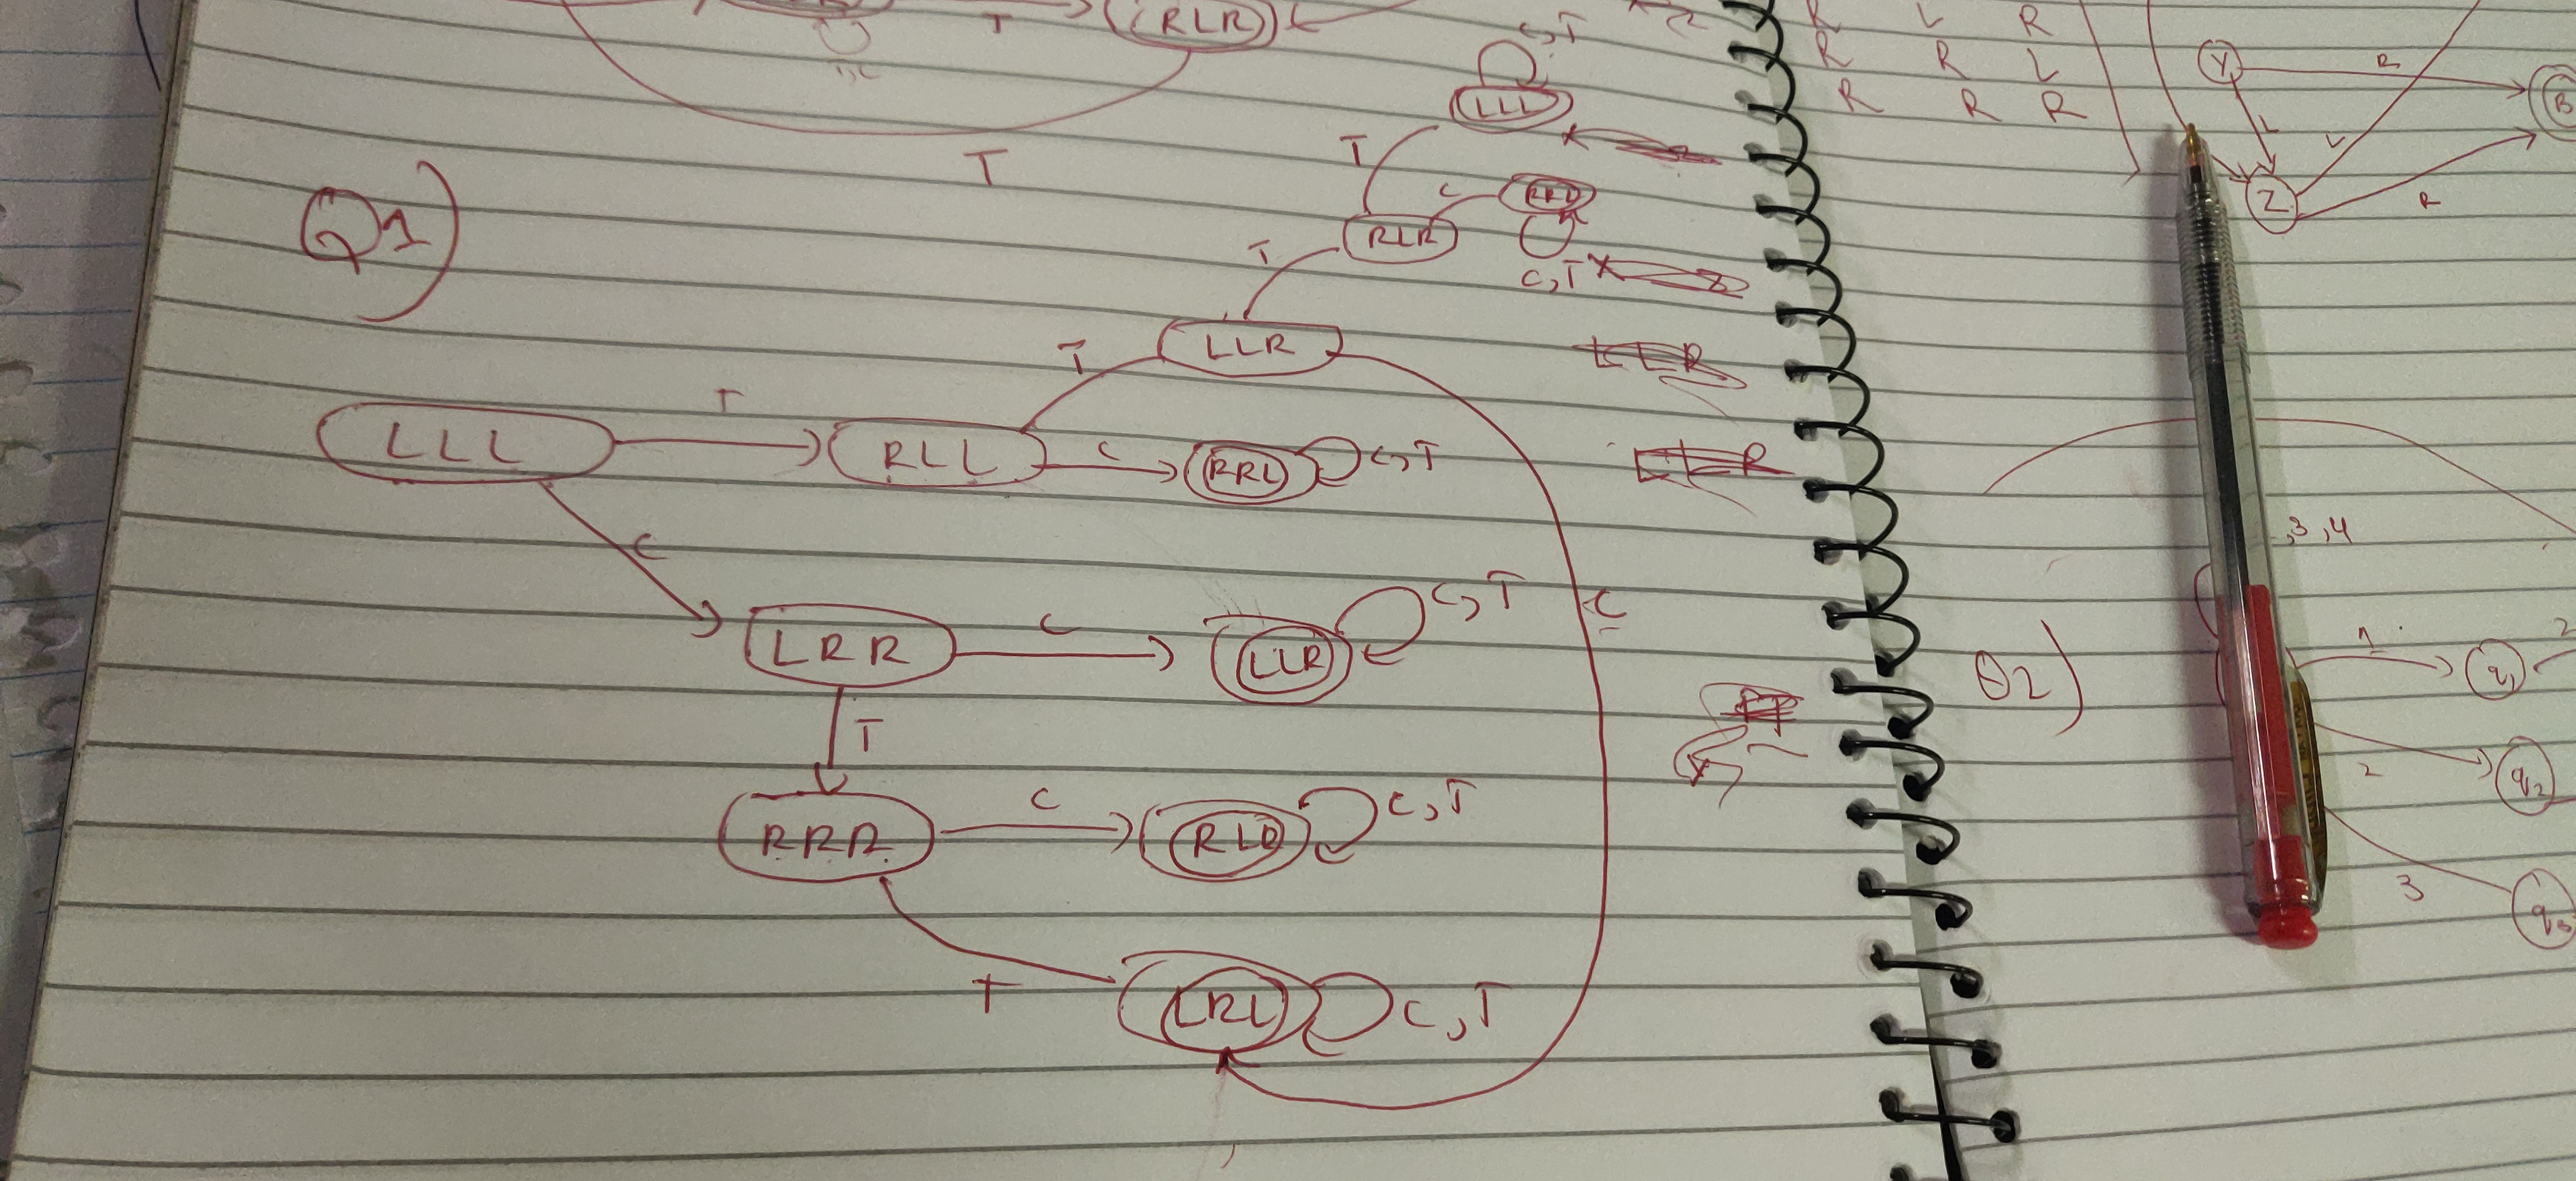 T
(RLR)
T
Q1)
C,T
LLL
T
C
RLR
C,T
T
LLR
T
LLL
T
RLL
C
RRL
C,T
C
LRR
C
LLR
C,T
C
T
RRR
C
RLR
C,T
T
LRL
C,T
R L R
R R L
R R R
Y
R
B
L
L
Z
R
,3,4
Q2)
1
q1
2
2
q2
3
q3